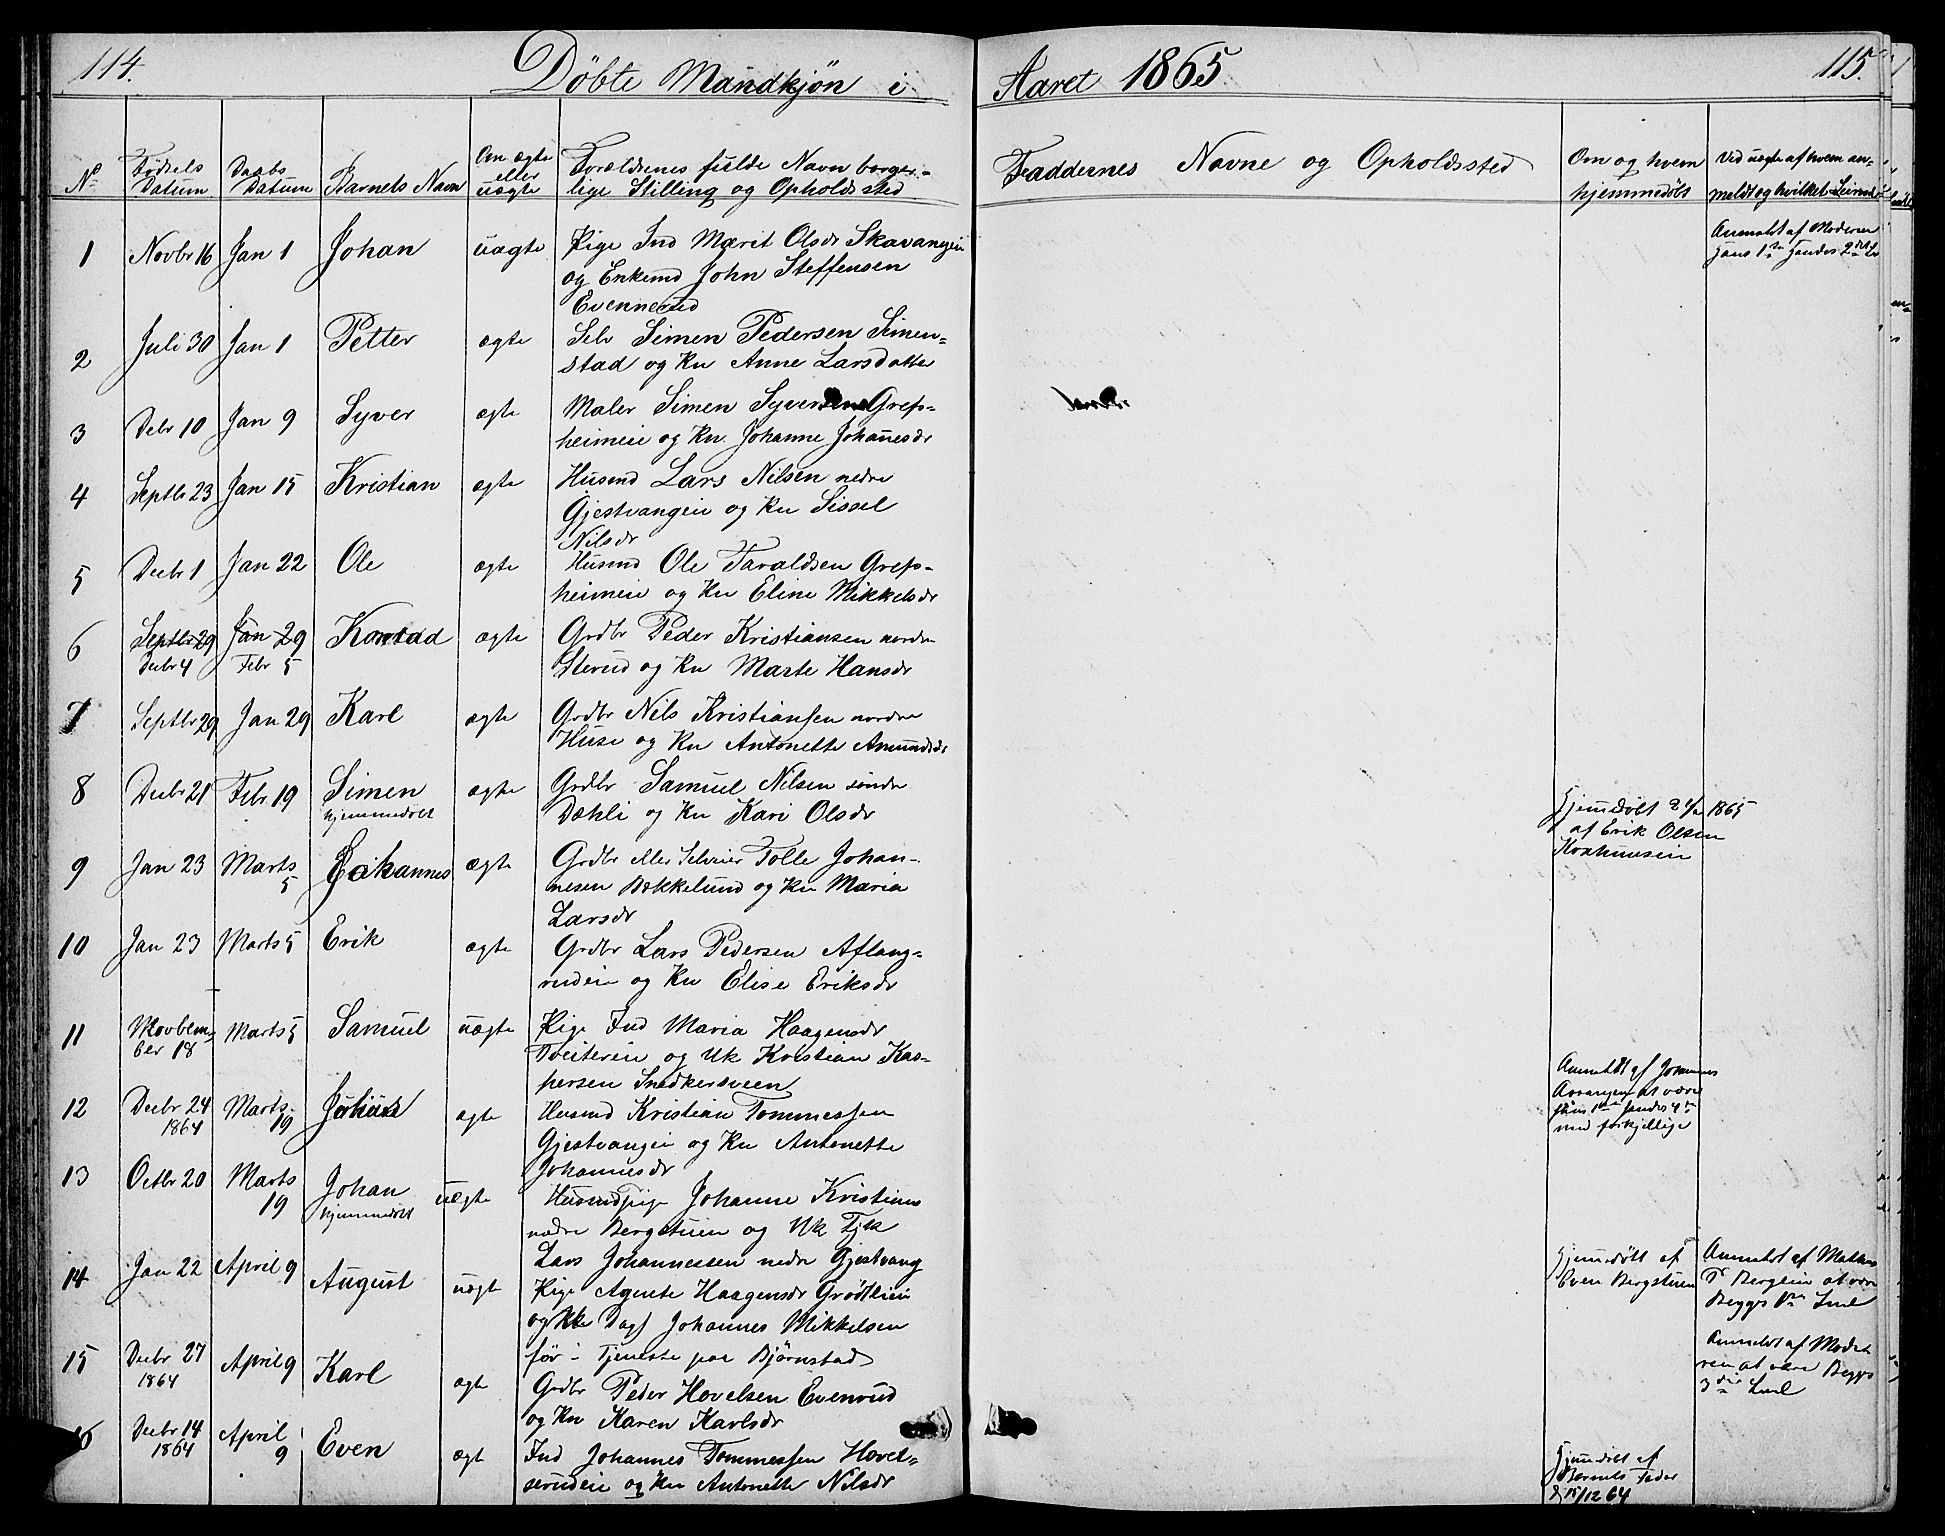 114.
Døbte Mandkjøn i
Aaret 1865
115.
No
Fødsels Datum
Daabs Datum
Barnets Navn
Om ægte eller uægte
Forældrenes fulde Navn borger-
lige Stilling og Opholdssted
Faddernes Navne og Opholdssted
Om og hvem
hjemmedøbt
Ved uægte af hvem an-
meldt og hvilket Leiermaal
1 Novbr 16 Jan 1 Johan uægte Pige Ind Marit Olsdr Skavangeie
og Enkemd John Steffensen
Evennerud
Anmeldt af Moderen
hans 1ste hendes 2det L
2 Juli 30 Jan 1 Petter ægte Selv Simen Pedersen Simen-
stad og Kn Anne Larsdatter
3 Debr 10 Jan 9 Syver ægte Maler Simen Syversen Grefs-
heimeie og Kn. Johanne Johanesdr
4 Septbr 23 Jan 15 Kristian ægte Husmd Lars Nilsen nedre
Gjestvangeie og Kn Sissel
Nilsdr
5 Decbr 1 Jan 22 Ole ægte Husmd Ole Taraldsen Grefs-
heimeie og Kn Eline Mikkelsdr
6 Septbr 29 Jan 29 Konrad ægte Grdbr Peder Kristiansen nordre
Decbr 4 Febr 5 Sterud og Kn Marte Hansdr
7 Septbr 29 Jan 29 Karl ægte Grdbr Nils Kristiansen nordre
Huse og Kn Antonette Amundsdr
8 Decbr 21 Febr 19 Simen ægte Grdbr Samuel Nilsen søndre
hjemmedøbt Dæhli og Kn Kari Olsdr
Hjemdøbt 2 1/2 1865
af Erik Olsen
9 Jan 23 Marts 5 Johannes ægte Grdbr eller Selveier Tolle Johan-
nesen Bækkelund og Kn Maria
Larsdr
10 Jan 23 Marts 5 Erik ægte Grdbr Lars Pedersen Aflang-
rudeie og Kn Elise Eriksdr
11 Novbem-
ber 18 Marts 5 Samuel uægte Pige Ind Maria Haagensdr
Tveitereie og Uk Kristian Kas-
persen Snedkersveen
Anmeldt af Johannes
at være
hans 1ste hendes 4de
med forskjellige
12 Decbr 24
1864 Marts 19 Julius ægte Husmd Kristian Tommessen
Gjestvangeie og Kn Antonette
Johannesdr
13 Octbr 20 Marts
19 Johan uægte Husmdpige Johanne Kristians
hjemmedøbt nedre Bergstuen og Uk Tjk
Lars Johannessen nedre Gjestvang
Hjemdøbt af
Even Bergstuen
Anmeldt af Mathias
P Bergseie at være
Begges 1ste Leil
14 Jan 22 April 9 August uægte Pige Agnete Haagensdr Grødtlien
og Uk Dag) Johannes Mikkelsen
før i Tjeneste paa Bjørnstad
Anmeldt af Mode
ren at være Begges
3die Leil
15 Decbr 27
1864 April 9 Karl ægte Grdbr Peder Hovelsen Evenrud
og Kn Karen Karlsdr
16 Decbr 14
1864 April
9 Even ægte Ind Johannes Tommessen Hovel-
serudeie og Kn Antonette Nilsdr
Hjemdøbt af
Barnets Fader
d 15/12 64